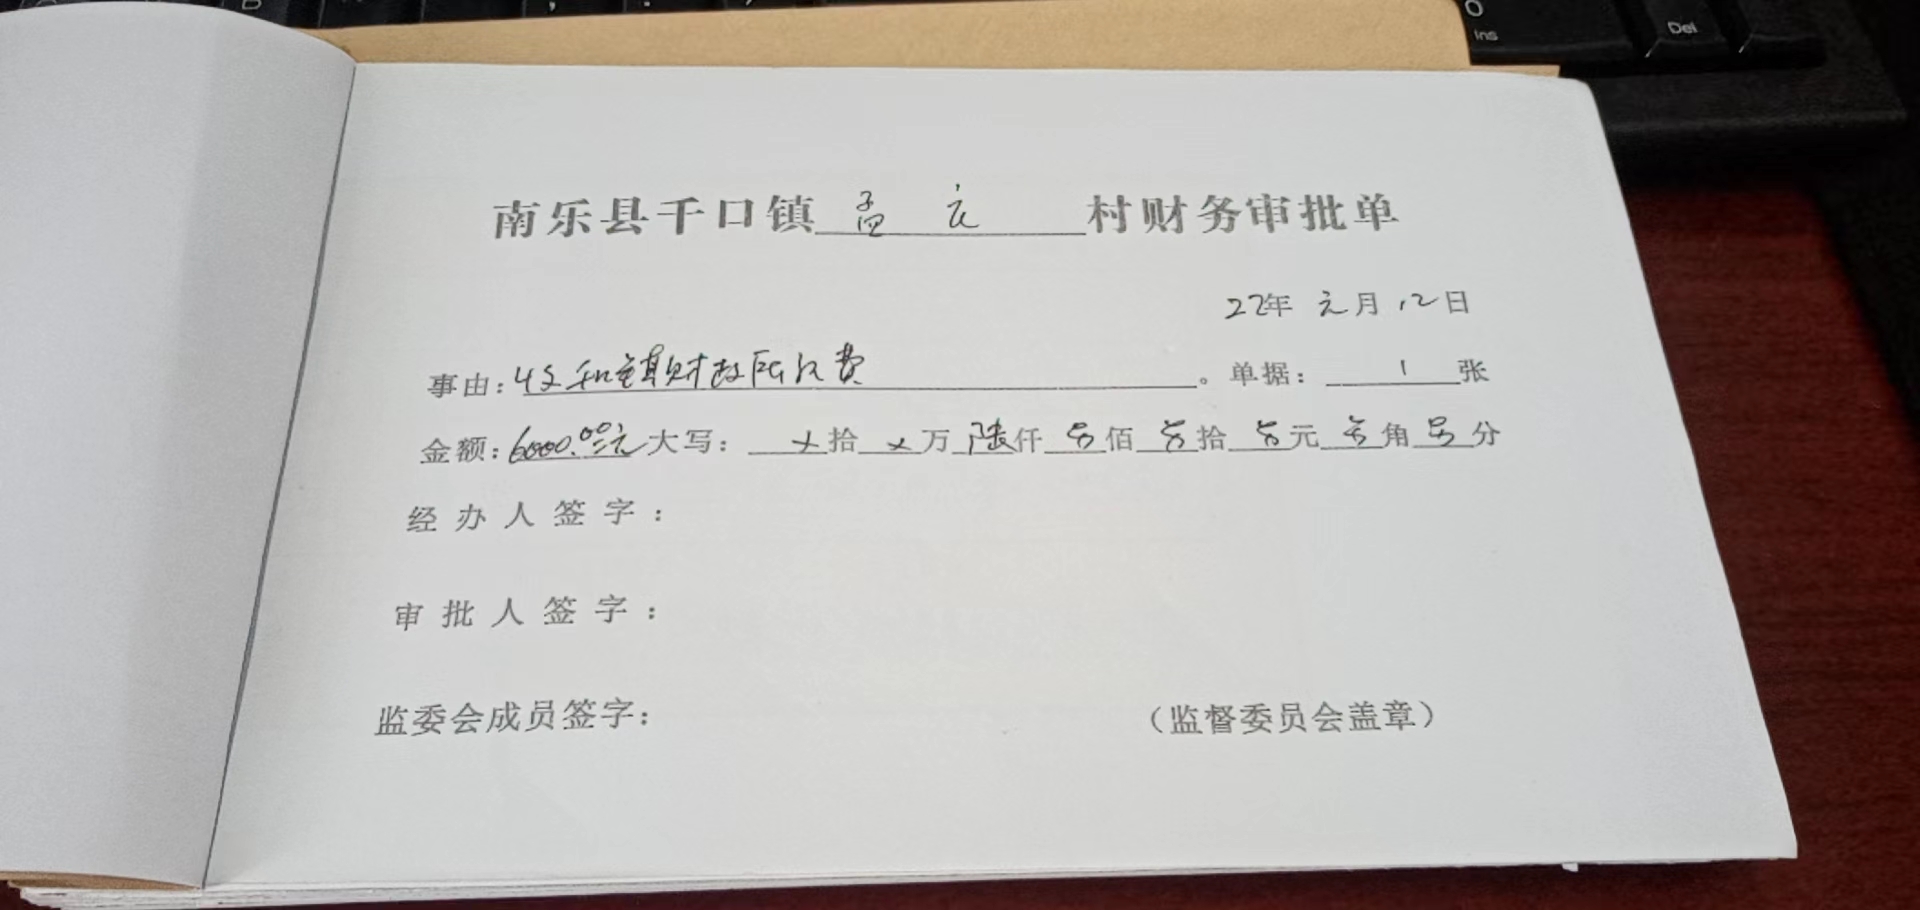 南乐县千口镇 孟庄 村财务审批单
22年 元月 12日
事由:收到镇财政所经费。单据: 1 张
金额:6000.00元 大写: ×拾 ×万 陆仟 另佰 另拾 另元 另角 另分
经办人签字:
审批人签字:
监委会成员签字: (监督委员会盖章)
Ins
Del